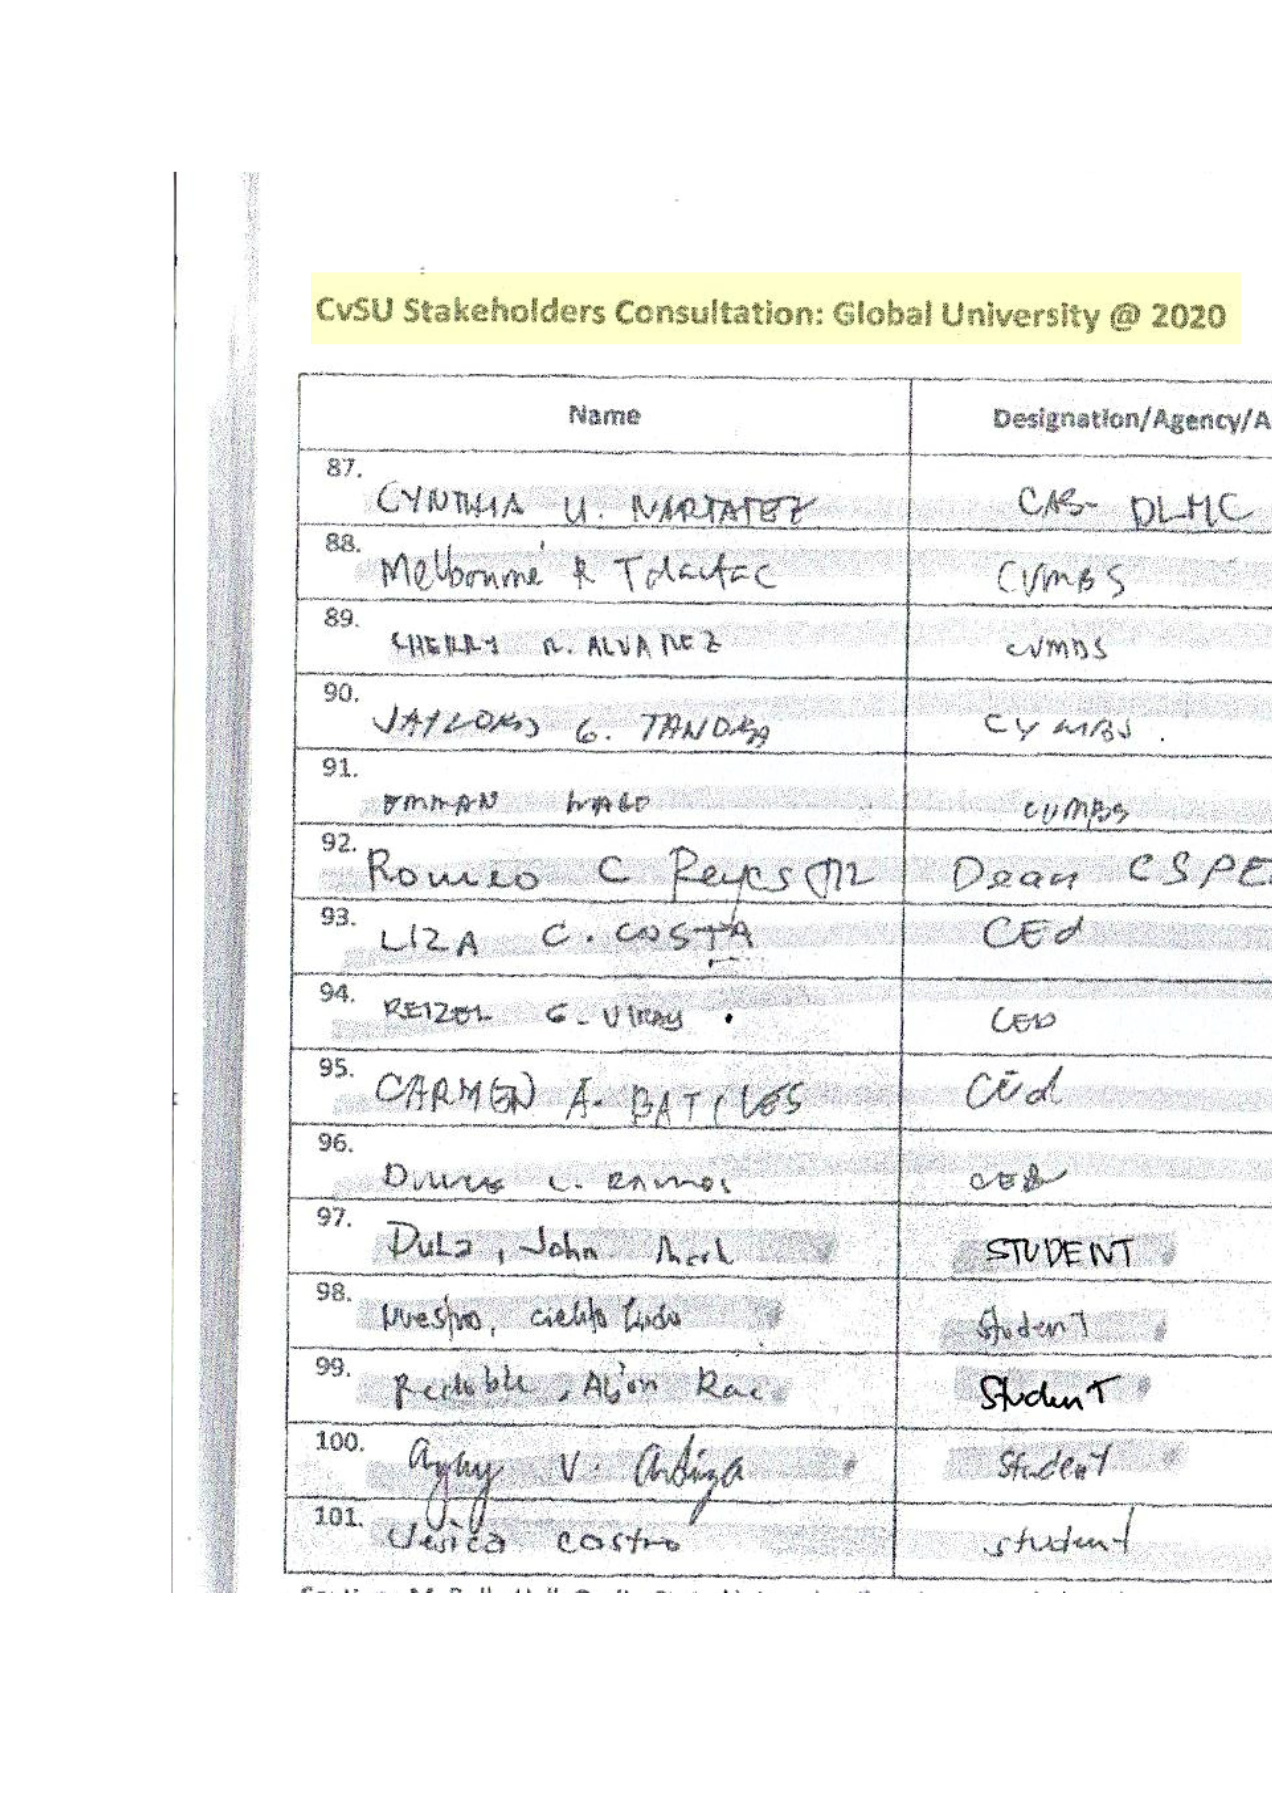 CvSU Stakeholders Consultation: Global University @ 2020
Name Designation/Agency/A
87. CYNTHIA U. NARTATEZ CAS- DLMC
88. Melbourne R CVMBS
89. CHERRY R. ALVAREZ CVMBS
90. G. CVMBS
91. CVMBS
92. Romeo C Reyes Dean CSPE
93. LIZA C. COSTA CEd
94. REIZEL G. VIRAY CED
95. CARMEN A. BATILES CEd
96. C. RAMOS CED
97. John STUDENT
98. Nuestro, Cielito Lindo Student
99. Redoble, Rae Student
100. V. Student
101. Jesica Castro student